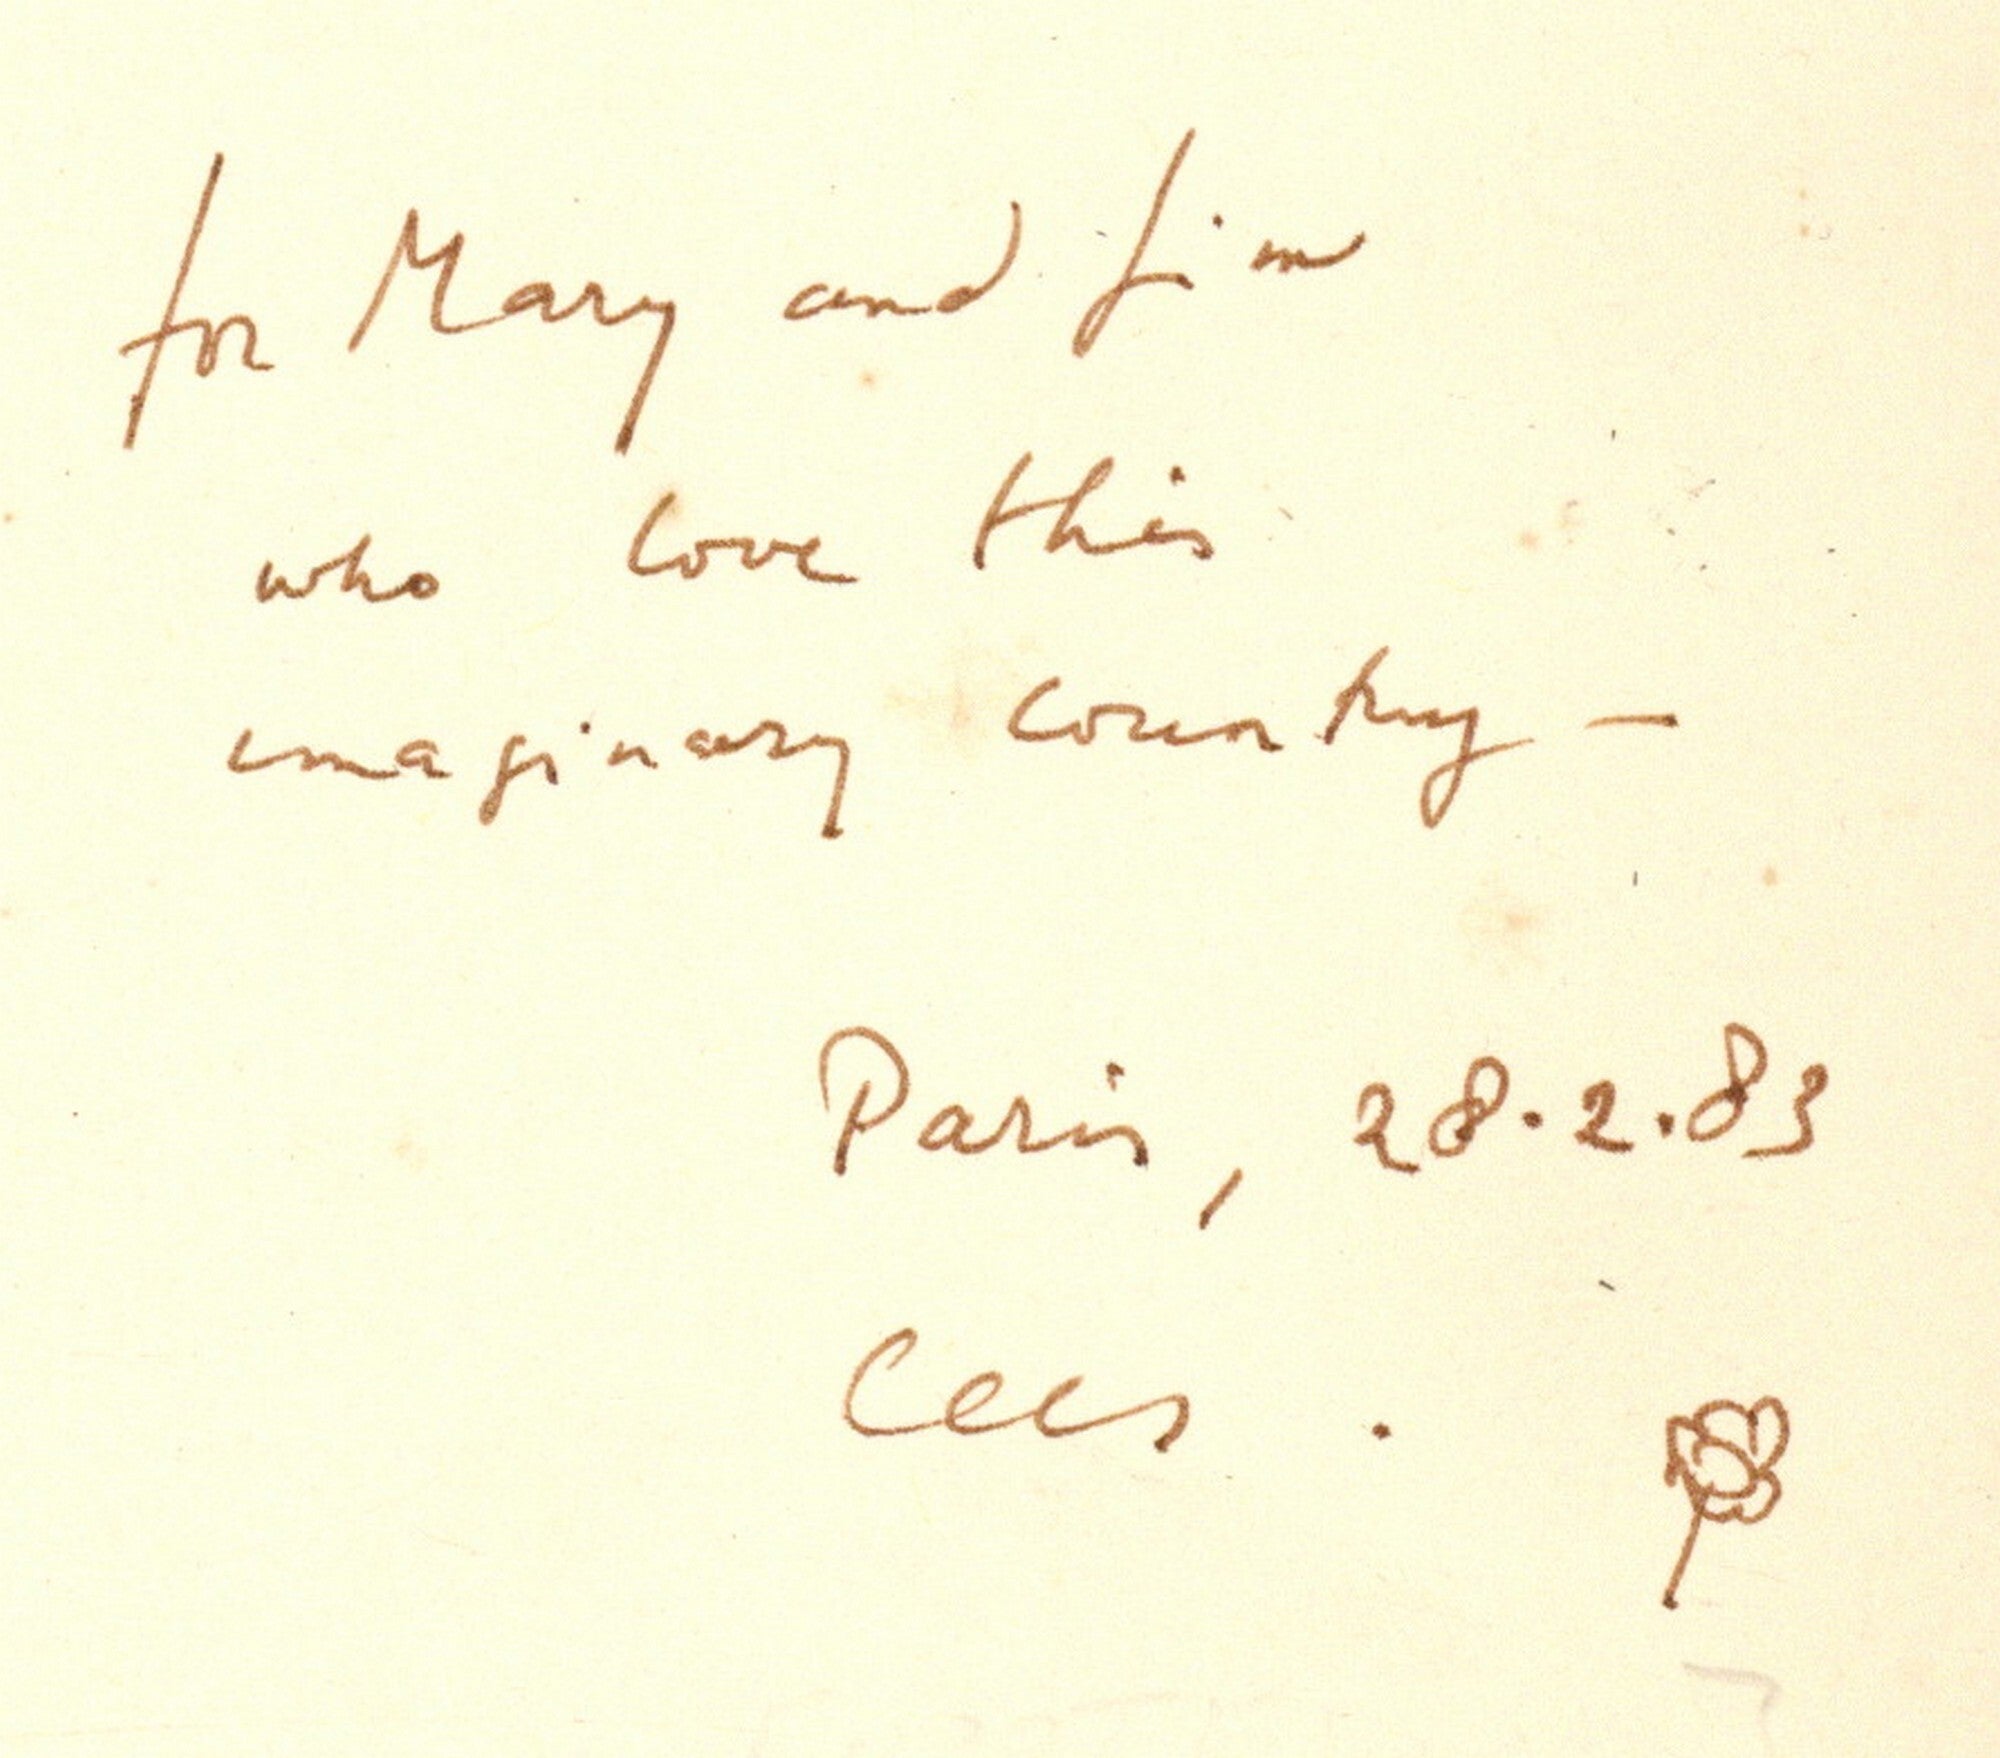 for Mary and Jim
who love this
imaginary country —
Paris, 28.2.83
Cees.